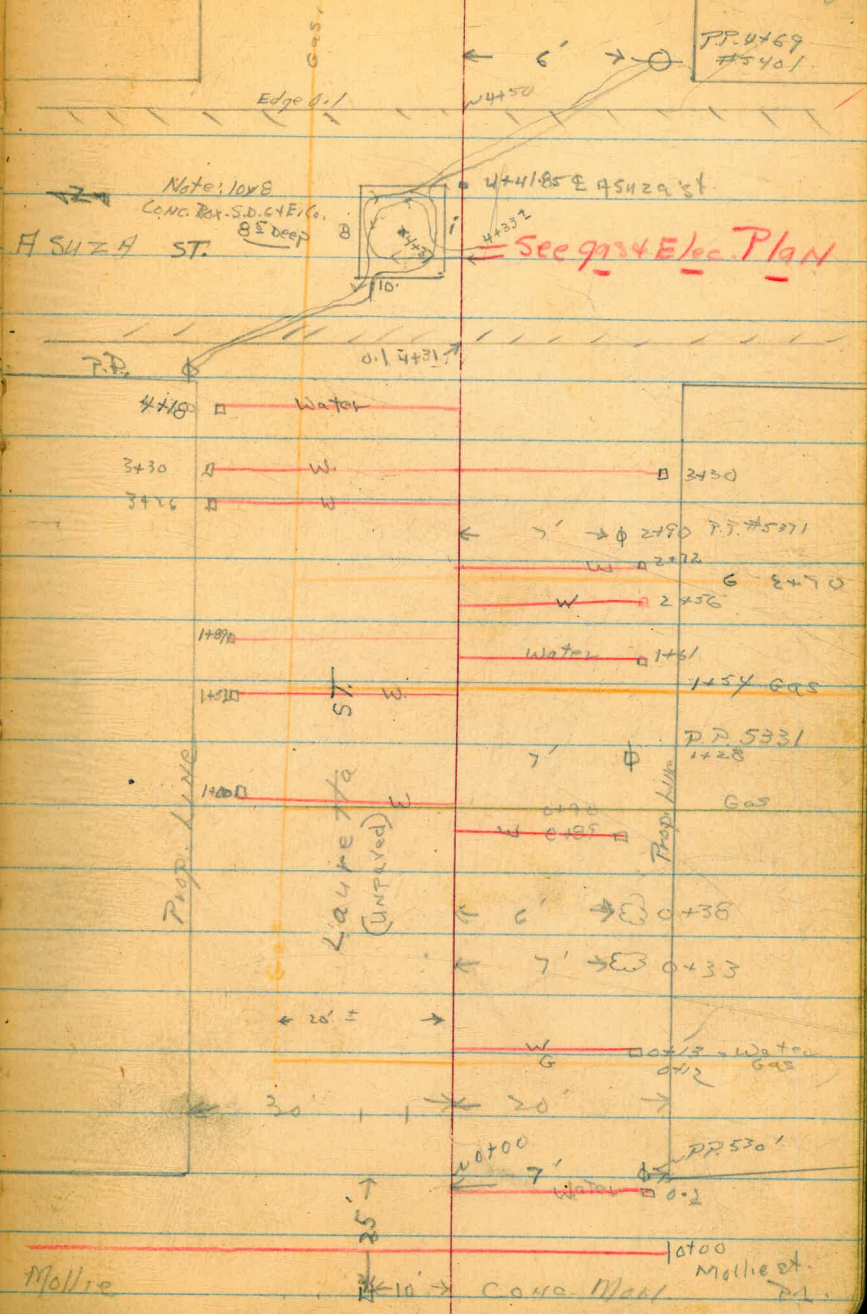 Gas
6'
P.P. 4+69
#5401
Edge 0.1
4+50
Note: 10x8
Conc. Box. S.D.G+E.Co.
8⁵ Deep
ASUZA ST.
8
10.
4+41.85 ℄ Asuza st
4+33²
See gas & Elec. Plan
P.P.
0.1 4+31
4+18
Water
3+30
W.
3+30
3+26
W
7'
2+90 P.P. #5371
W
2+72
G
2+70
W
2+56
1+89
Water
1+61
1+51
W.
1+54 Gas
7'
P.P. 5331
1+28
1+00
W
0+90
Gas
W
0+85
Prop. LINE
Lauretta ST.
(Unpaved)
Prop. Line
6'
0+38
7'
0+33
Gas
20' ±
W
0+13 - Water
G
0+12
Gas
30'
20'
0+00
7'
P.P. 5301
Water
0.2
25'
0+00
Mollie st.
Mollie
10'
Conc. Mon
P.L.